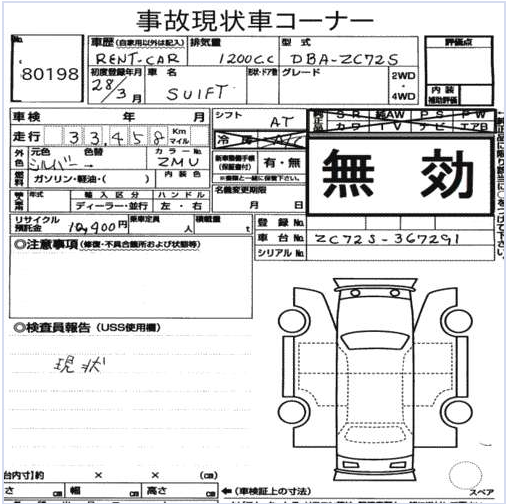 事故現状車コーナー
No. 80198
車歴 (自家用以外は記入) RENT-CAR
排気量 1200C.C
型式 DBA-ZC72S
評価点
初度登録年月 28/3月
車名 SUIFT
形状・ドア数
グレード
2WD・4WD
内装補助評価
車検 年 月
シフト AT
走行 33,458 Km マイル
冷房
S R 純AW P S P W
カワ T V ナビ エアB
外色 元色 シルバー 色替 →
カラーNo. ZMU
新車整備手帳 (保証書付) 有・無
※書類と一緒に保管下さい
無効
燃料 ガソリン・軽油・( )
内装色
名義変更期限 月 日
年式
輸入区分 ディーラー・並行
ハンドル 左・右
リサイクル預託金 10,400円
乗車定員 人
積載量 t
登録No.
車台No. ZC72S-367291
シリアルNo.
◎注意事項 (修復・不具合箇所および状態等)
◎検査員報告 (USS使用欄)
現状
台内寸)約 × × (cm)
さ cm 幅 cm 高さ cm
←(車検証上の寸法)
スペア